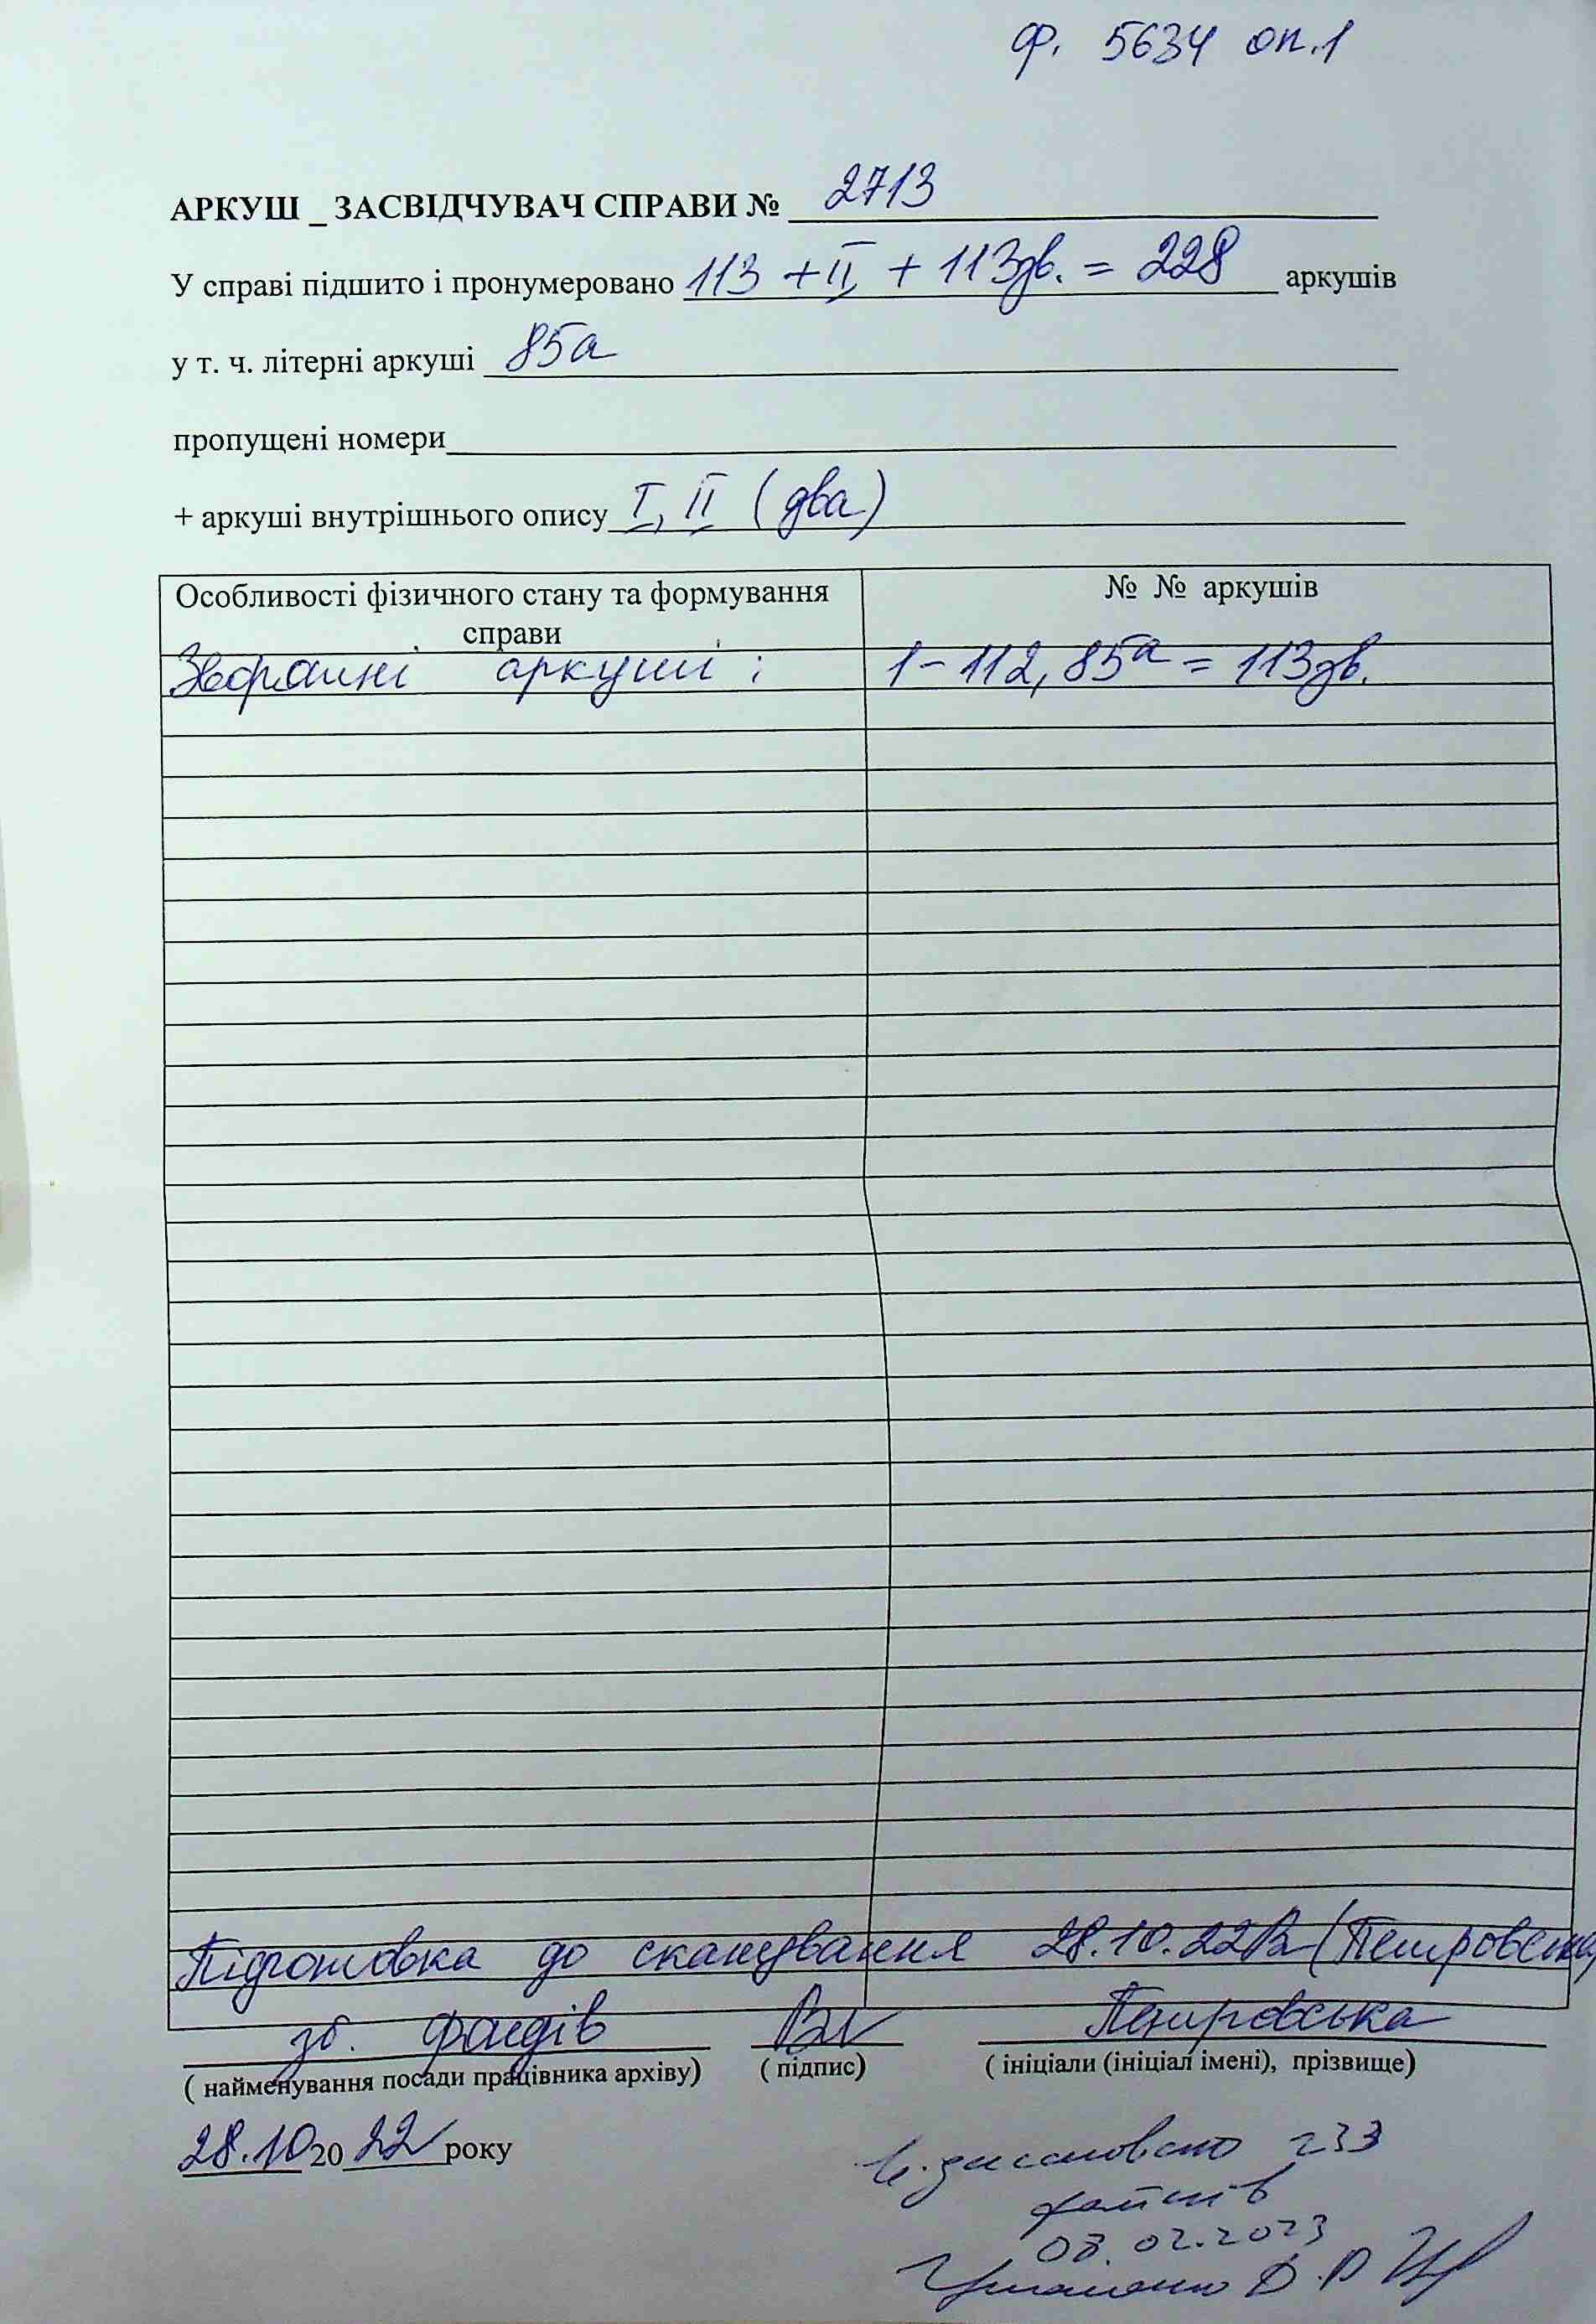 ф. 5634 оп.1
АРКУШ _ ЗАСВІДЧУВАЧ СПРАВИ № 2713
У справі підшито і пронумеровано 113 + II + 113зв. = 228 аркушів
у т. ч. літерні аркуші 85а
пропущені номери
+ аркуші внутрішнього опису I, II (два)
Особливості фізичного стану та формування справи
№ № аркушів
Зворотні аркуші :
1-112, 85а = 113зв.
Підготовка до сканування 28.10.22 (Петровська)
зб. фондів
Петровська
( найменування посади працівника архіву)
( підпис)
( ініціали (ініціал імені), прізвище)
28.10 2022 року
233
файлів
08.02.2023